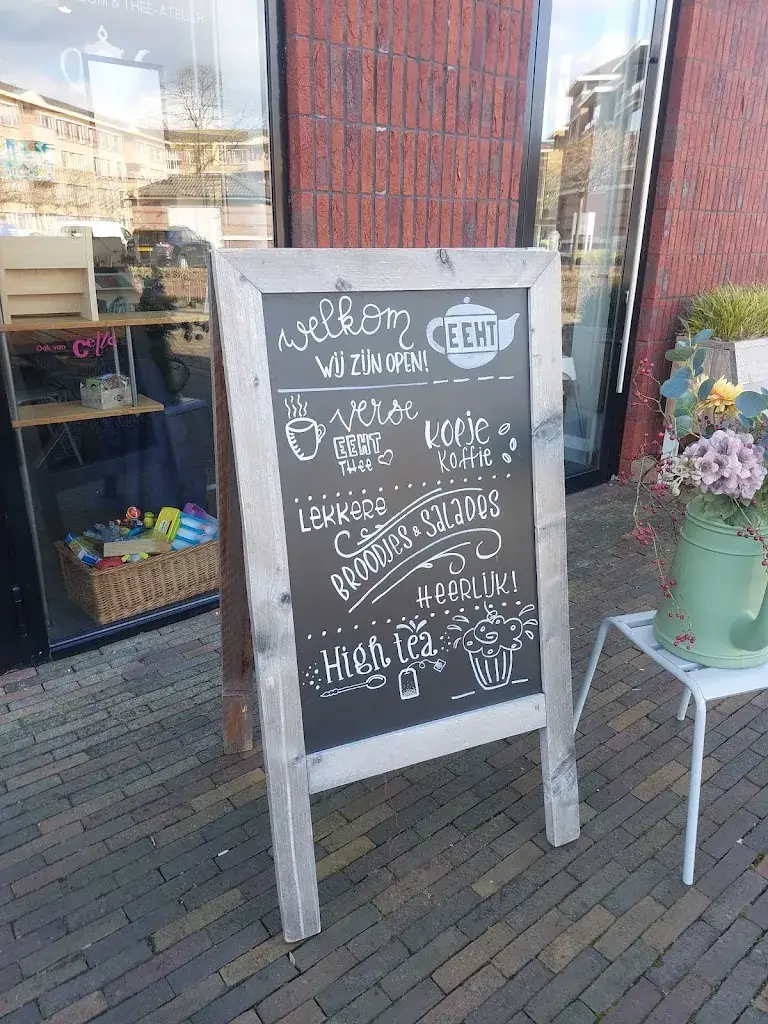 OOM & THEE-ATELIER
Ook van Cella
welkom
WIJ ZIJN OPEN!
EEHT
verse
EEHT
THEE
KOPJE
KOFFIE
LEKKERE
BROODJES & SALADES
HEERLIJK!
High tea